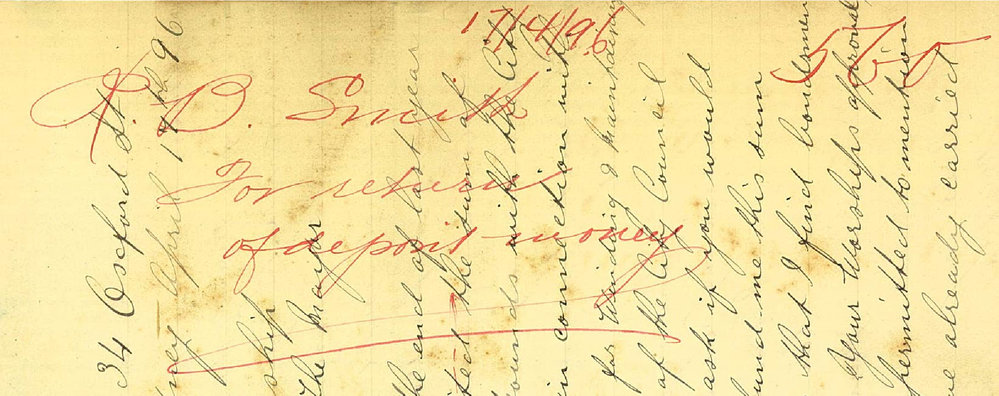 17/4/96
560
R B. Smith
For return
of deposit money
34 Oxford St.
April 17th 96
The Mayor
the end of last year
the sum of
with the City
in connection with
for winding & maintaining
of the City Council
ask if you would
fund me this sum
that I find bondsmen
Your Worships approval
permitted to mention
already carried